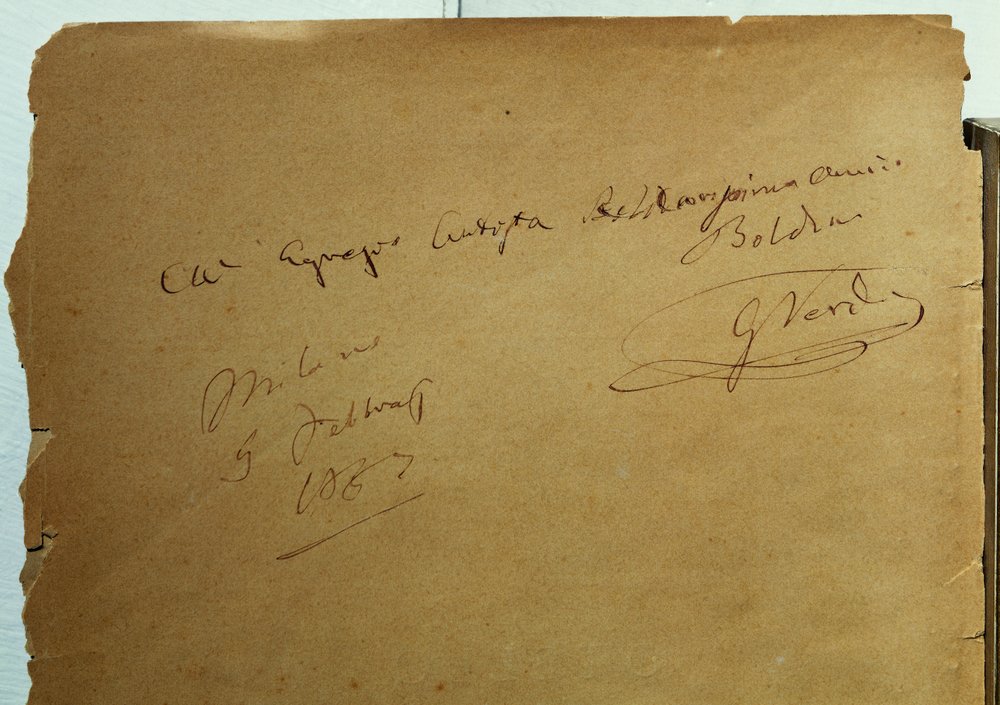 All' Egregio Artista ed carissimo amico
Boldini
G Verdi
Milano
9 Febbraj
1887